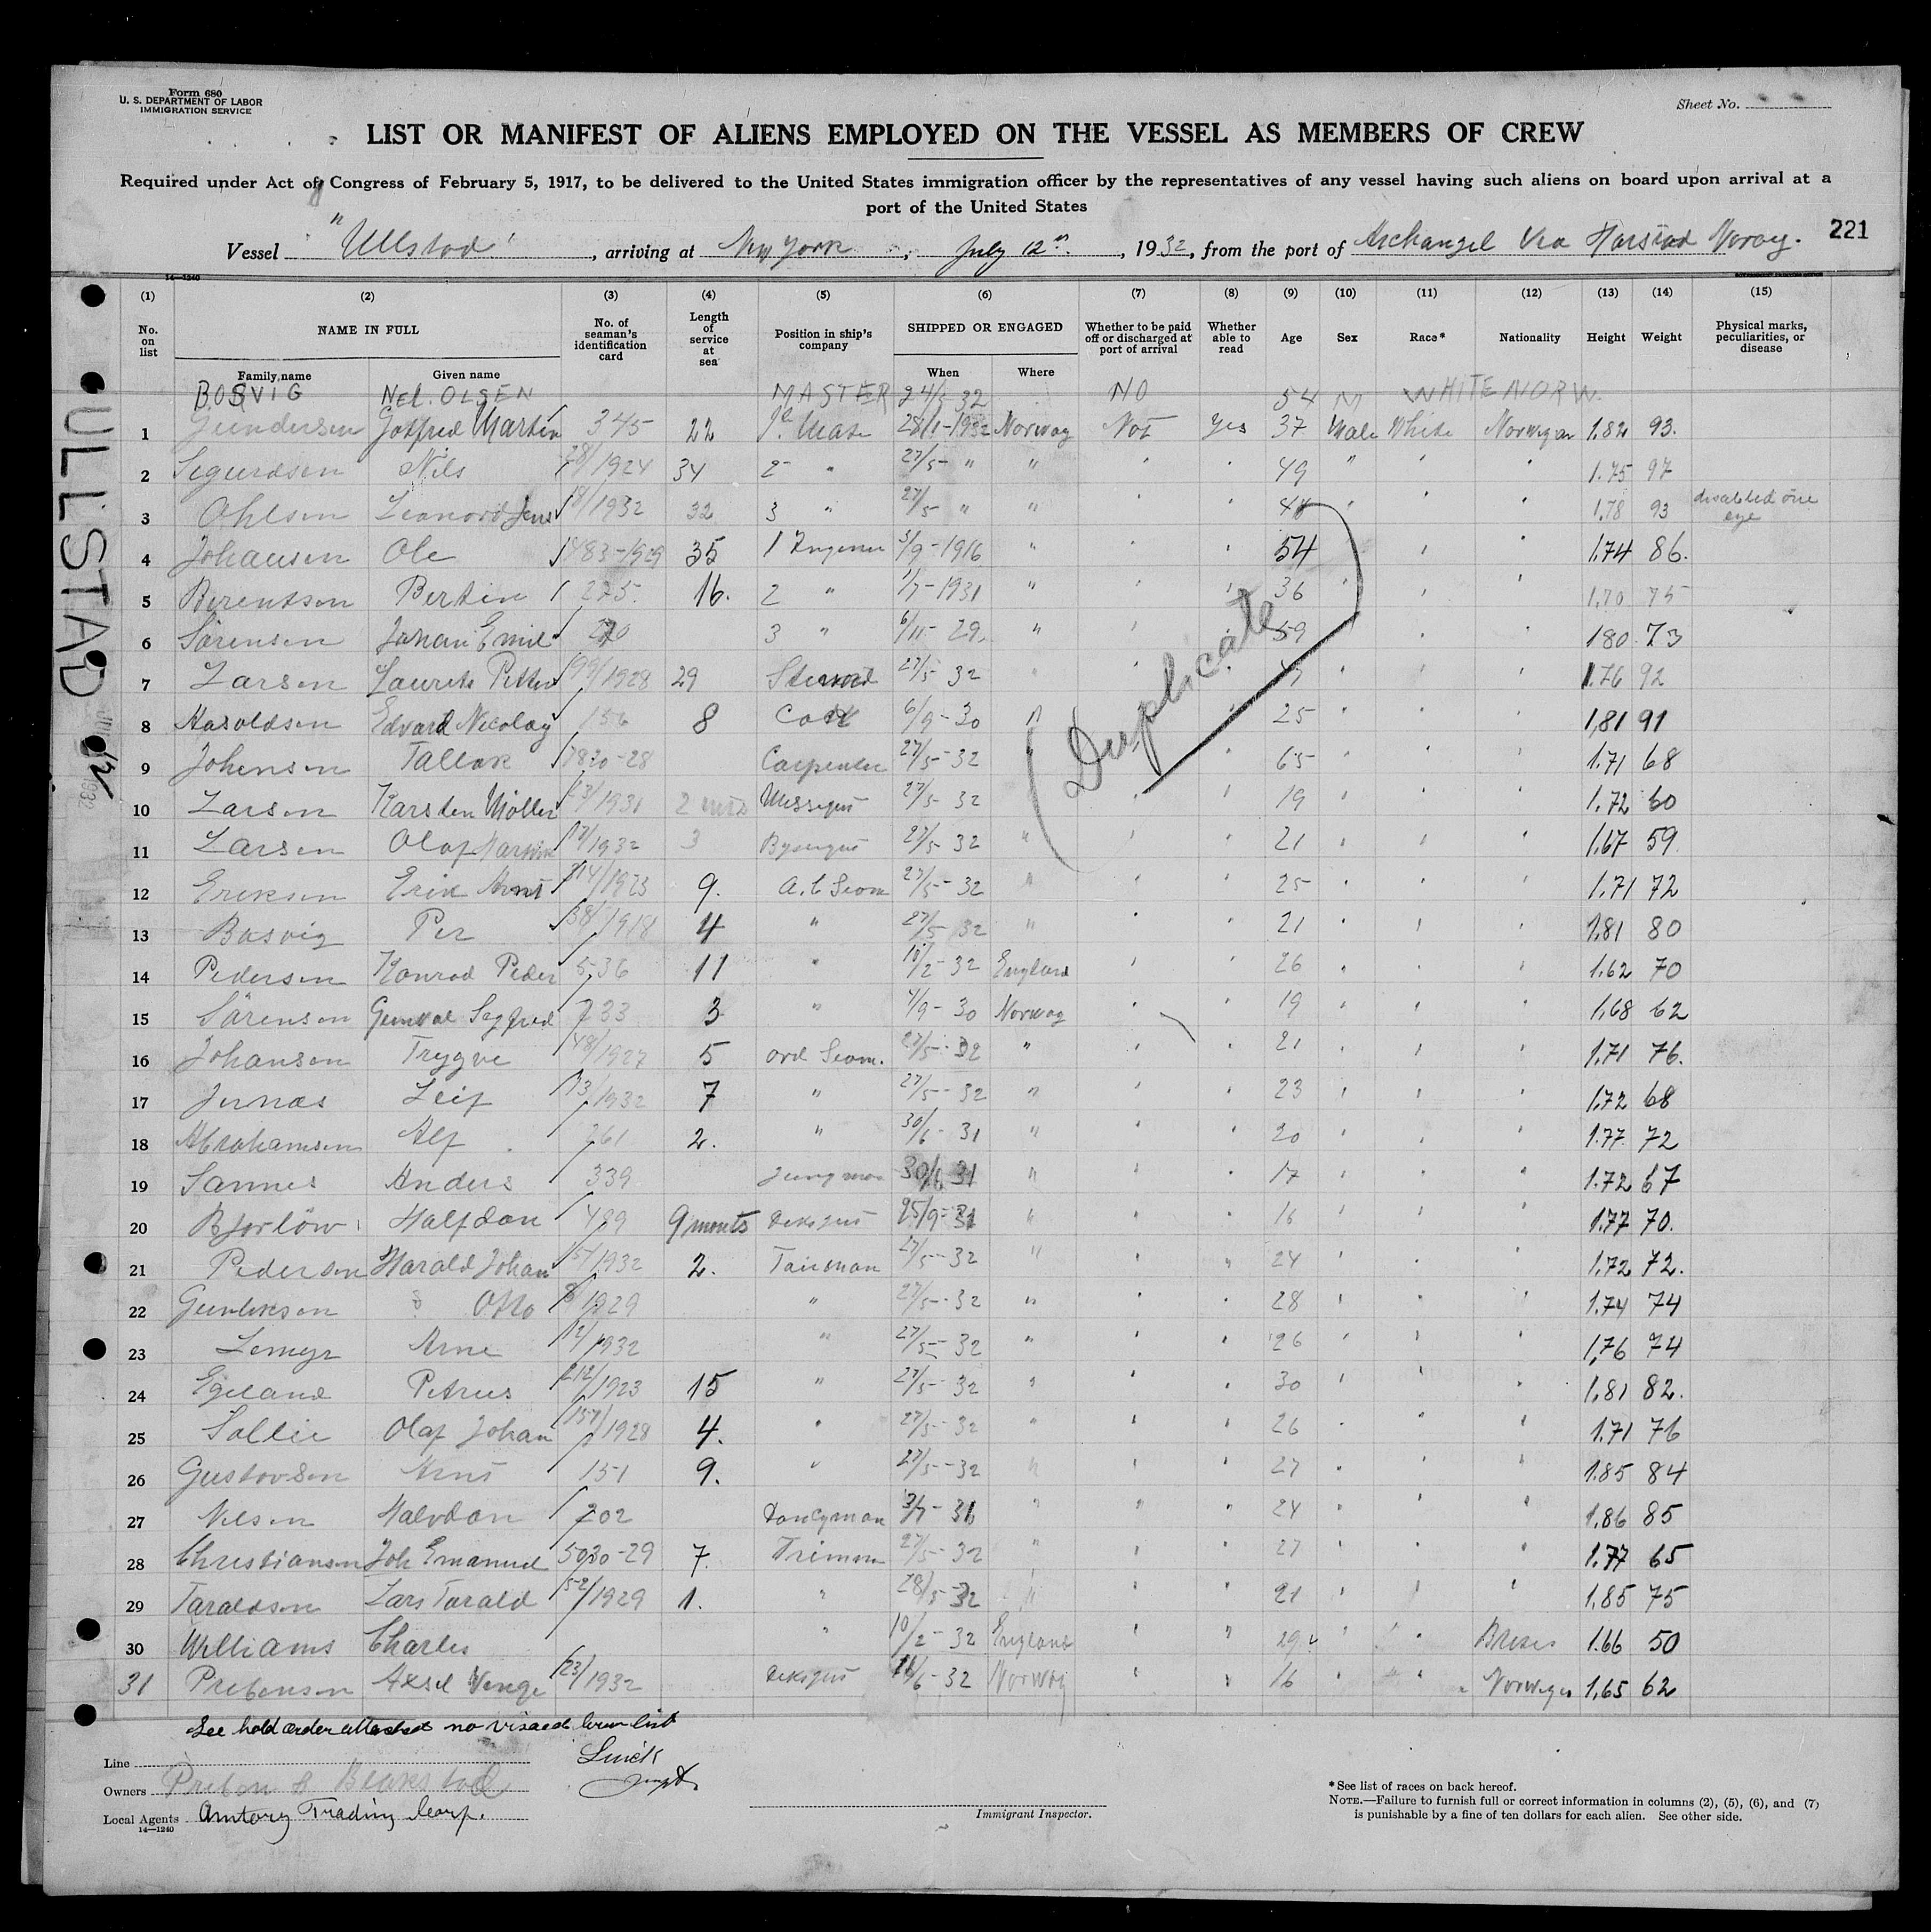 Form 680
U. S. DEPARTMENT OF LABOR
IMMIGRATION SERVICE
Sheet No.
LIST OR MANIFEST OF ALIENS EMPLOYED ON THE VESSEL AS MEMBERS OF CREW
Required under Act of Congress of February 5, 1917, to be delivered to the United States immigration officer by the representatives of any vessel having such aliens on board upon arrival at a
port of the United States
Vessel "Ullstad", arriving at New York, July 12th, 1932, from the port of Archangel Via Harstad Noray.
221
14—1240
(1) (2) (3) (4) (5) (6) (7) (8) (9) (10) (11) (12) (13) (14) (15)
No. on list NAME IN FULL No. of seaman's identification card Length of service at sea Position in ship's company SHIPPED OR ENGAGED Whether to be paid off or discharged at port of arrival Whether able to read Age Sex Race* Nationality Height Weight Physical marks, peculiarities, or disease
Family name Given name When Where
BOSVIG NEL. OLSEN MASTER 24/5 32 NO 54 M WHITE NORW.
1 Gundersen Gotfred Martin 345 22 Mate 28/1-1932 Norway Not Yes 37 Male White Norwegian 1,82 93.
2 Sigurdsen Nils 28/1924 34 2 " 27/5- " " 49 " 1.75 97
3 Ohlsen Leonord Jens 18/1932 32 3 " 27/5 " " 1,78 93 disabled one eye
4 Johansen Ole 35 1 5/9-1916 " 54 1,74 86.
5 Berentsen Bertin 225 16. 2 " 1/7-1931 " 36 1,70 75
6 Sörensen Johan Emil 3 " 6/11-29. " 59 180 73
7 Larsen Laurits Petter 199/1928 29 Steword 27/5-32 1.76 92
8 Haroldsen Edvard Nicolay 156 8 Cook 6/9-30 " 25 1,81 91
9 Johensen Tallak 7830-28 Carpenter 27/5-32 65 1.71 68
10 Larsen Karsten Möller 23/1931 27/5-32 19 1,72 60
11 Larsen Olaf 17/1932 3 27/5 32 " 21 1,67 59
12 Eriksen Erik Arnt 9. A.b Seom 27/5-32 " 25 1.71 72
13 Bosvig Per 38/1918 4 " 27/5 32 " 21 1,81 80
14 Pedersen Konrad Peder 536 11 " 10/2-32 England 26 1.62 70
15 Sörensen 733 3 " 4/9-30 Norway 19 1,68 62
16 Johansen Trygve 48/1927 5 ord Seom. 27/5-32 " 21 1,71 76.
17 Leif 13/1932 7 " 27/5-32 " 23 1,72 68
18 Abrahamsen Alf 261 2. " 30/6-31 " 20 1.77 72
19 Sannes Anders 339 30/6 31 " 17 1.72 67
20 Halfdan 489 9 monts 25/9-31 " 16 1.77 70.
21 Pedersen Harald Johan 2. 27/5-32 " 24 1,72 72.
22 Otto 8/1929 " 27/5-32 " 28 1,74 74
23 Lemyr Arne 12/1932 " 27/5-32 " 26 1,76 74
24 Egeland Petrus 212/1923 15 " 27/5-32 " 30 1,81 82.
25 Sollie Olaf Johan 157/1928 4. " 27/5-32 " 26 1.71 76
26 Gustovsen Arnt 151 9. " 27/5-32 " 27 1.85 84
27 Nilsen Halvdan 202 Donkyman " 24 1,86 85
28 Christiansen Joh Emanuel 5030-29 7. 27/5-32 " 27 1.77 65
29 Taraldsen Lars Tarald 52/1929 1. " 28/5-32 " 21 1,85 75
30 Williams Charles " 10/2-32 England 29 1.66 50
31 Prebensen Axsel 23/1932 32 Norway 16 1,65 62
Duplicate
ULLSTAD
See hold order attached no visaed Crew list
Line
Owners
Local Agents Amtorg Trading Corp.
14—1240
Immigrant Inspector.
*See list of races on back hereof.
NOTE.—Failure to furnish full or correct information in columns (2), (5), (6), and (7)
is punishable by a fine of ten dollars for each alien. See other side.